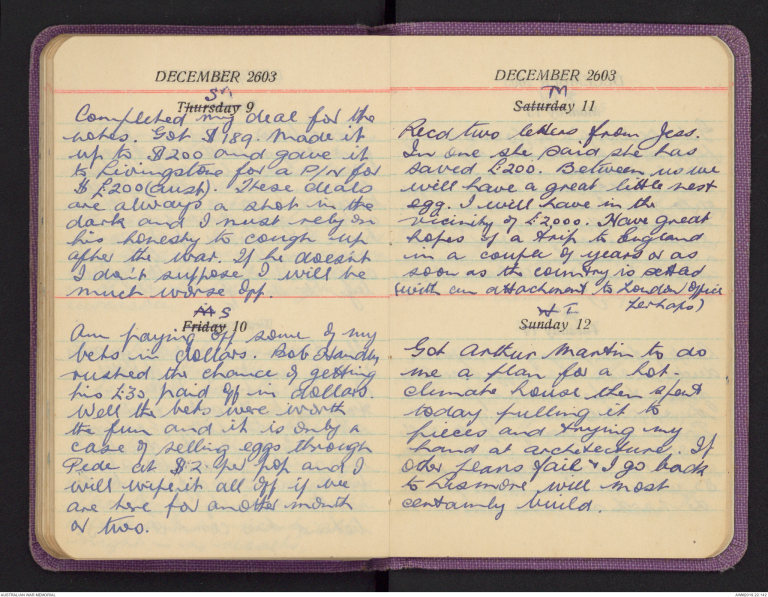 DECEMBER 2603
Sn
Thursday 9
Completed my deal for the
notes. Got $189. Made it
up to $200 and gave it
to Livingstone for a P/N for
$ £200 (Aust). These deals
are always a shot in the
dark and I must rely on
his honesty to cough up
after the war. If he doesn't
I don't suppose I will be
much worse off.
S
Friday 10
Am paying off some of my
bets in dollars. Bob Handley
rushed the chance of getting
his £30 paid off in dollars.
Well the bets were worth
the fun and it is only a
case of selling eggs through
Pede at $2 per pop and I
will wipe it all off if we
are here for another month
or two.
DECEMBER 2603
M
Saturday 11
Recd two letters from Jess.
In one she said she has
saved £200. Between us we
will have a great little nest
egg. I will have in the
vicinity of £2000. Have great
hopes of a trip to England
in a couple of years or as
soon as the country is settled
(with an attachment to London Office
perhaps)
T
Sunday 12
Got Arthur Martin to do
me a plan for a hot-
climate house then spent
today pulling it to
pieces and trying my
hand at architecture. If
other plans fail & I go back
to Lismore will most
certainly build.
AUSTRALIAN WAR MEMORIAL